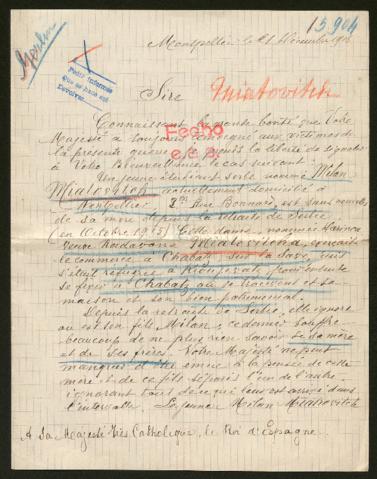 13904
Montpellier le 21 Décembre 191
Berlin
Petit Informe
Sire
Miatovitch
Connaissant la grande bonté que Votre
Majesté a toujours témoigné aux victimes de
la présente guerre je prends la liberté de signaler
à Votre Bienveillance le cas suivant :
Fecho
Un jeune étudiant serbe nommé Milan
Miatovitch actuellement domicilié à
Montpellier 3 Rue Bonnard est sans nouvelles
de sa mère depuis la retraite de Serbie
(en Octobre 1915) Cette dame, nommée
Veuve Miatovitch
le commerce à Chabatz sur la Save, puis
s'était réfugiée à
se fixer à Chabatz où se trouvent et sa
maison et son bien patrimonial.
Depuis la retraite de Serbie, elle ignore
où est son fils, Milan, ce dernier souffre
beaucoup de ne plus rien savoir de sa mère
et de ses frères. Votre Majesté ne peut
manquer d'être émue à la pensée de cette
mère et de ce fils séparés l'un de l'autre
ignorant tout de ce qui leur est arrivé dans
l'intervalle. Le jeune Milan Miatovitch
A Sa Majesté Très Catholique, le Roi d'Espagne